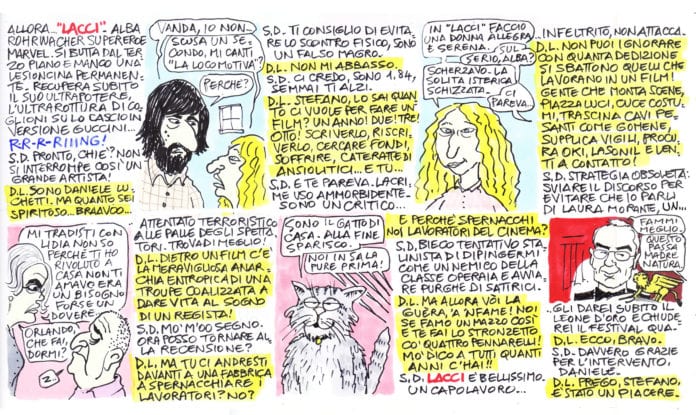 ALLORA... "LACCI". ALBA
ROHRWACHER SUPEREROE
MARVEL. SI BUTTA DAL TER
ZO PIANO E MANCO UNA
LESIONCINA PERMANEN-
TE. RECUPERA SUBITO
IL SUO ULTRAPOTERE,
L'ULTRAROTTURA DI CO-
GLIONI SU LO CASCIO IN
VERSIONE GUCCINI...
R-R-R-RIIING!
S.D. PRONTO, CHI E'? NON
SI INTERROMPE COSI' UN
GRANDE ARTISTA!
D.L. SONO DANIELE LU-
CHETTI. MA QUANTO SEI
SPIRITOSO... BRAAVOO...
VANDA, IO NON
SCUSA UN SE-
CONDO, MI CANTI
"LA LOCOMOTIVA"?
PERCHE'?
S.D. TI CONSIGLIO DI EVITA-
RE LO SCONTRO FISICO, SONO
UN FALSO MAGRO.
D.L. NON MI ABBASSO.
S.D. CI CREDO, SONO 1,84,
SEMMAI TI ALZI.
D.L. STEFANO, LO SAI QUAN
TO CI VUOLE PER FARE UN
FILM? UN ANNO! DUE! TRE!
OTTO! SCRIVERLO, RISCRI-
VERLO, CERCARE FONDI,
SOFFRIRE, CATERATTE DI
ANSIOLITICI... E TU...
S.D. E TE PAREVA. LACRI-
ME USO AMMORBIDENTE
SONO UN CRITICO...
IN "LACCI" FACCIO
UNA DONNA ALLEGRA
E SERENA.
SUL
SERIO, ALBA?
SCHERZAVO. LA
SOLITA ISTERICA
SCHIZZATA.
CI
PAREVA.
...INFELTRITO, NON ATTACCA.
D.L. NON PUOI IGNORARE
CON QUANTA DEDIZIONE
SI SBATTONO QUELLI CHE
LAVORANO IN UN FILM!
GENTE CHE MONTA SCENE,
PIAZZA LUCI, CUCE COSTU-
MI, TRASCINA CAVI PE-
SANTI COME GOMENE,
SUPPLICA VIGILI, PROCU-
RA OKI, LASONIL E LEN-
TI A CONTATTO!
S.D. STRATEGIA OBSOLETA:
SVIARE IL DISCORSO PER
EVITARE CHE IO PARLI
DI LAURA MORANTE, UN...
MI TRADISTI CON
LIDIA NON SO
PERCHE' TI HO
RIVOLUTO A
CASA, NON TI
AMAVO ERA
UN BISOGNO
FORSE UN
DOVERE...
ORLANDO,
CHE FAI,
DORMI?
Z...
ATTENTATO TERRORISTICO
ALLE PALLE DEGLI SPETTA-
TORI. TROVA DI MEGLIO!
D.L. DIETRO UN FILM C'E'
LA MERAVIGLIOSA ANAR
CHIA ENTROPICA DI UNA
TROUPE COALIZZATA A
DARE VITA AL SOGNO
DI UN REGISTA!
S.D. MO' M'OO SEGNO.
ORA POSSO TORNARE AL-
LA RECENSIONE?
D.L. MA TU CI ANDRESTI
DAVANTI A UNA FABBRICA
A SPERNACCHIARE I
LAVORATORI? NO?
SONO IL GATTO DI
CASA. ALLA FINE
SPARISCO.
NOI IN SALA
PURE PRIMA!
E PERCHE' SPERNACCHI
NOI LAVORATORI DEL CINEMA?
S.D. BIECO TENTATIVO STA-
LINISTA DI DIPINGERMI
COME UN NEMICO DELLA
CLASSE OPERAIA E AVVIA-
RE PURGHE DI SATIRICI.
D.L. MA ALLORA VÒI LA
GUÈRA, 'A 'NFAME! NOI
SE FAMO UN MAZZO COSI'
E TE FAI LO STRONZETTO
CO' QUATTRO PENNARELLI!
MO' DICO A TUTTI QUANTI
ANNI C'HAI!!
S.D. LACCI E' BELLISSIMO.
UN CAPOLAVORO...
FAMMI
MEGLIO.
QUESTO
PASSA
MADRE
NATURA.
...GLI DAREI SUBITO IL
LEONE D'ORO E CHIUDE-
REI IL FESTIVAL QUA.
D.L. ECCO, BRAVO.
S.D. DAVVERO GRAZIE
PER L'INTERVENTO,
DANIELE.
D.L. PREGO, STEFANO,
E' STATO UN PIACERE.